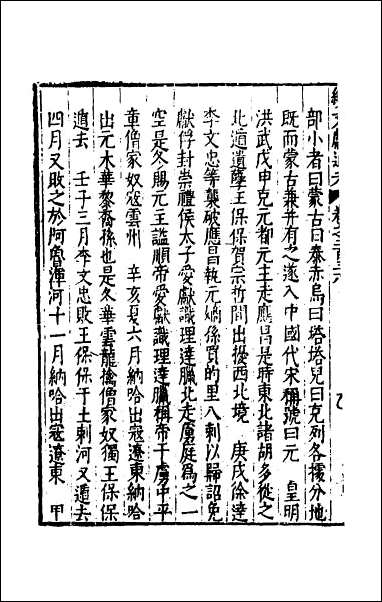 部小者曰蒙古曰泰赤烏曰塔塔兒曰克列各據分地
既而蒙古兼并有之遂入中國代宋稱號曰元　皇明
洪武戊申克元都元主走應昌是時東北諸胡多從之
北遁遺孽王保保賀宗哲間出擾西北境　庚戌徐達
李文忠等襲破應昌執元嫡孫買的里八剌以歸詔免
獻俘封崇禮侯太子愛猷識理達臘北走虜庭為之一
空是冬賜元主謚順帝愛猷識理達臘稱帝于虜中平
章僧家奴寇雲州　辛亥夏六月納哈出寇遼東納哈
出元木華黎裔孫也是冬華雲龍擒僧家奴獨王保保
遁去　壬子三月李文忠敗王保保于土剌河又遁去
四月又敗之於阿魯渾河十一月納哈出寇遼東　甲